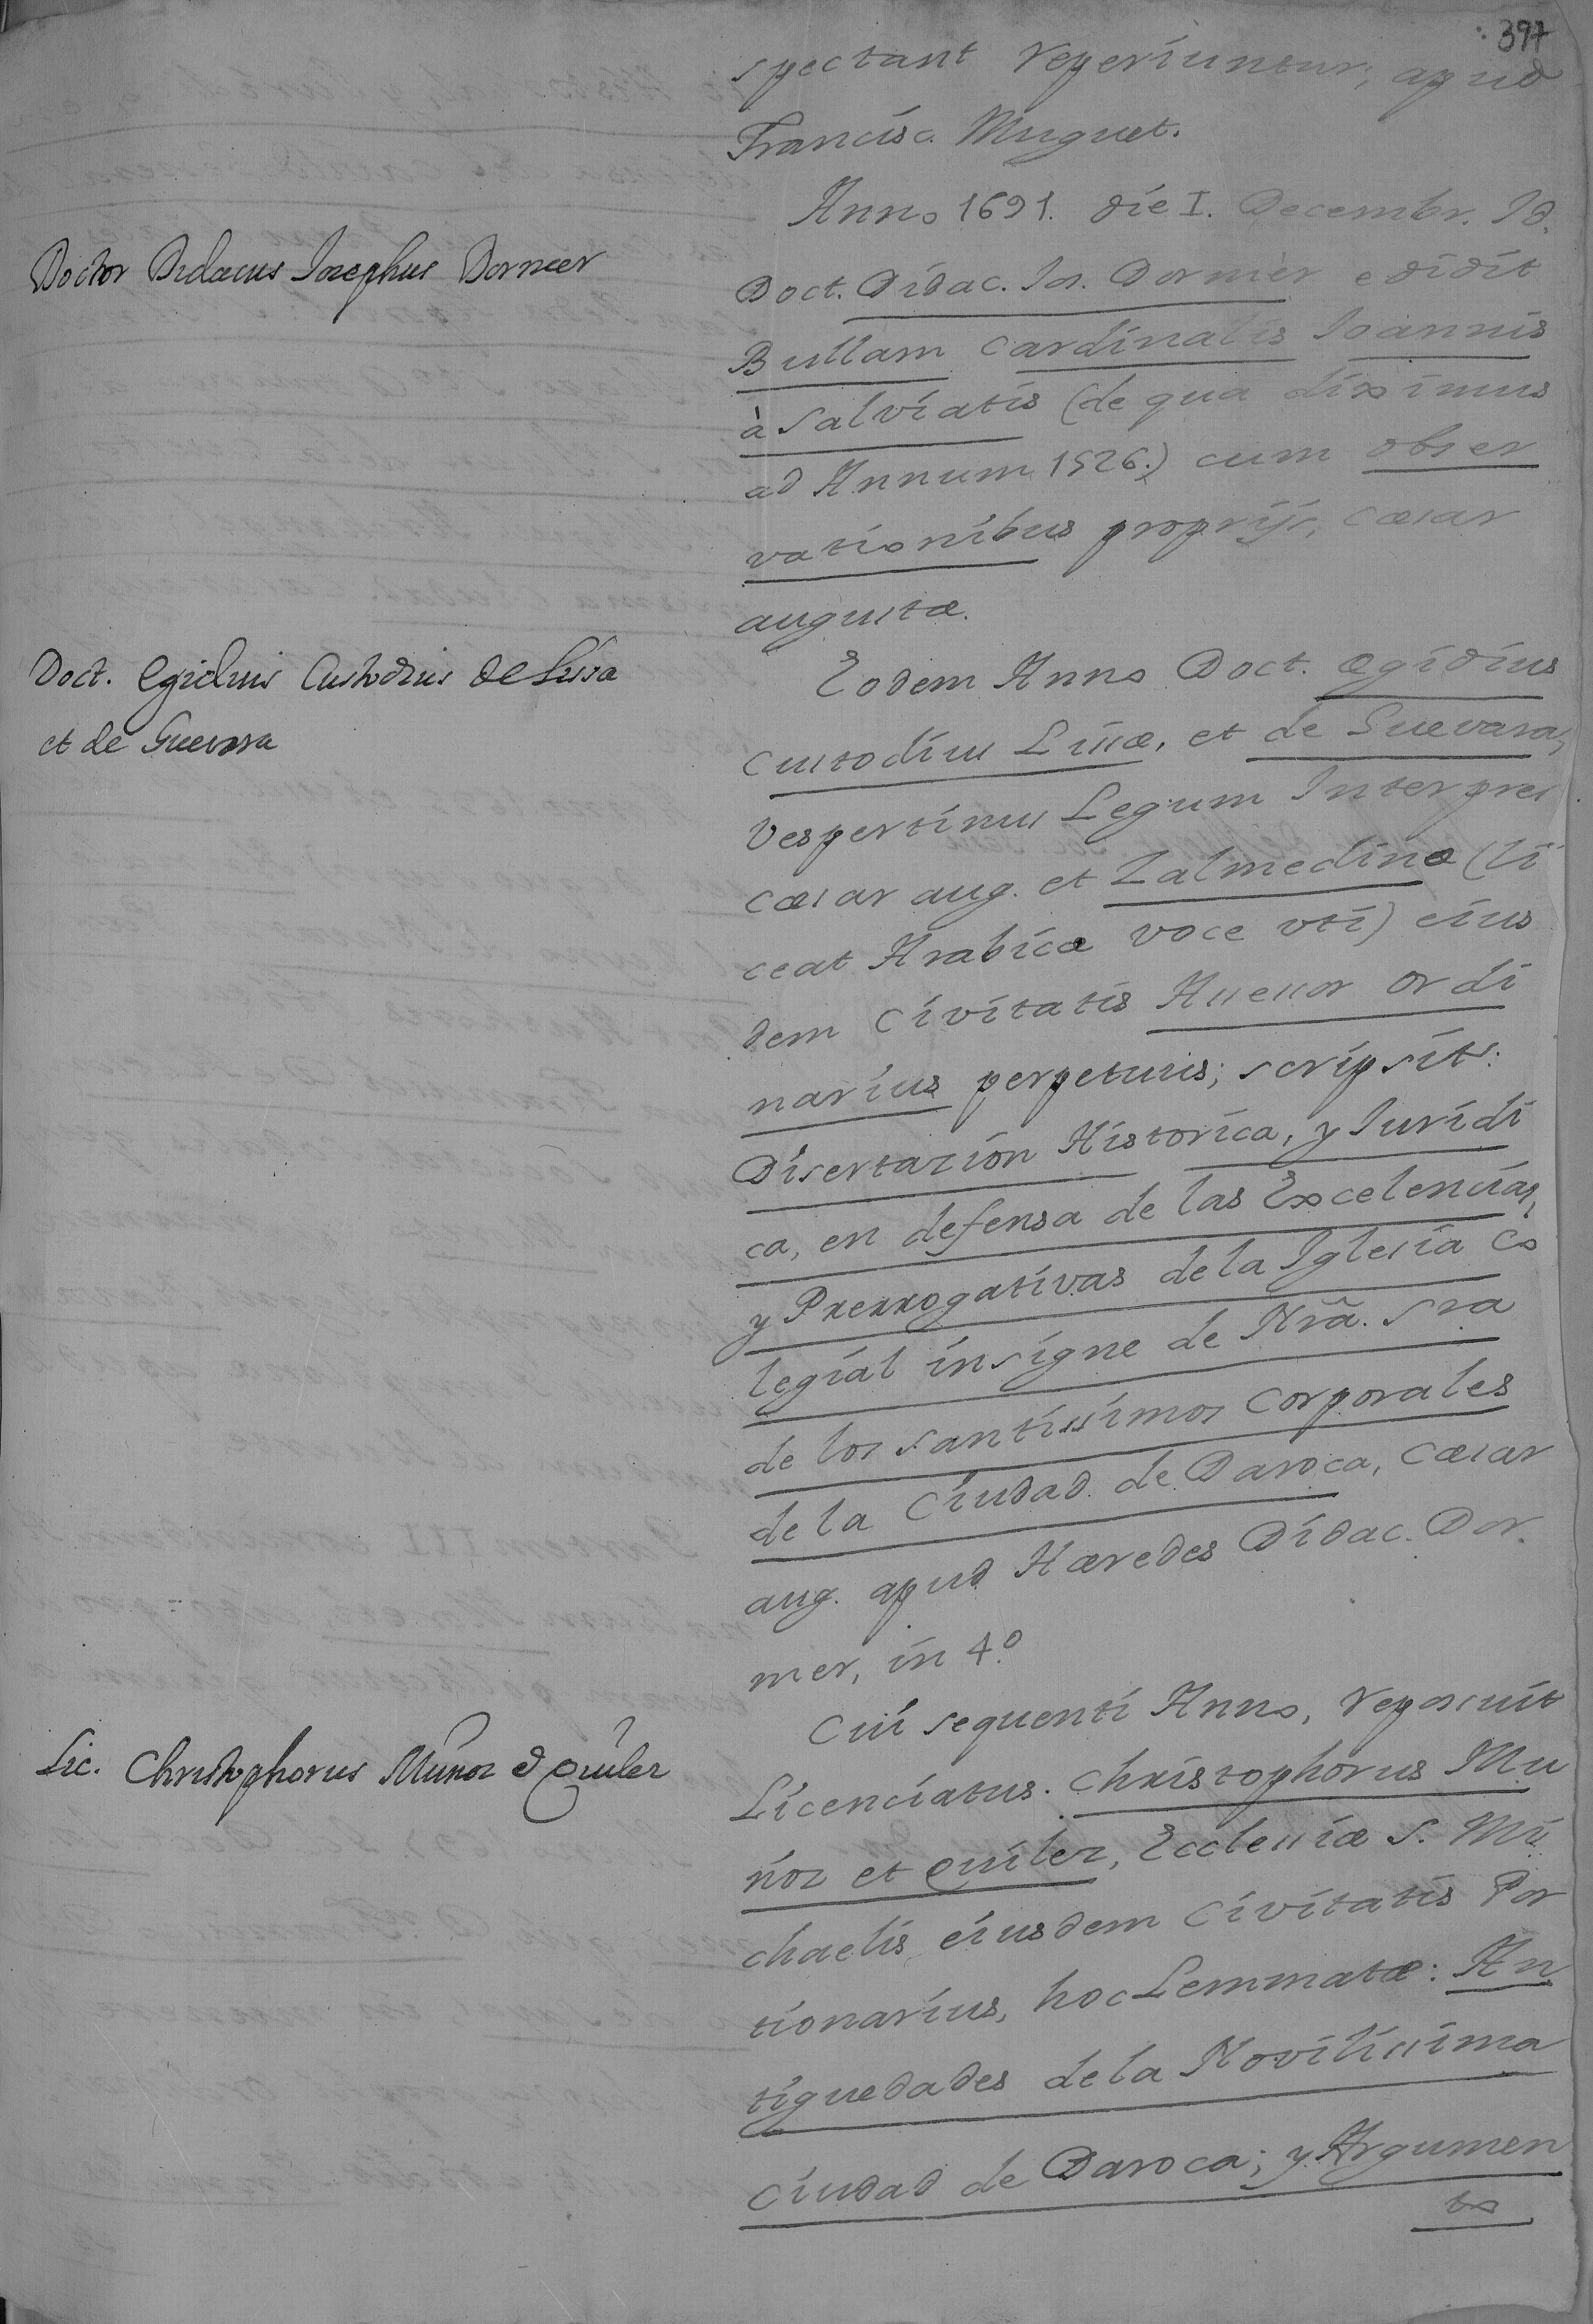 397
spectant reperiuntur, apud
Francisc. Muguet.
Anno 1691. die I. Decembr. Id.
Doctor Didacus Josephus Dormer
Doct. Didac. Jos. Dormer edidit
Bullam Cardinalis Joannis
à Salviatis (de qua diximus
ad Annum 1526.) cum obser
vationibus proprijs, Cæsar
augustæ.
Doct. Egidius Custodius de Lissa
et de Guevara
Eodem Anno Doct. Ægidius
Custodius Lissæ, et de Guevara,
Vespertinus Legum Interpres
Cæsar aug. et Zalmedinæ (li
ceat Arabicæ voce vti) eius
dem Civitatis Assessor ordi
narius perpetuus; scripsit:
Disertazión Historica, y Iuridi
ca, en defensa de las Excelencias,
y Prerrogativas de la Iglesia Co
legial insigne de Nrã. Sra
de los Santissimos Corporales
de la Ciudad de Daroca, Cæsar
aug. apud Hæredes Didac. Dor.
mer, in 4.º
Lic. Christophorus Munoz et Quilez
Cui sequenti Anno, reposuit
Licenciatus. Christophorus Mu
ñoz et Quilez, Ecclessiæ S. Mi
chaelis eiusdem Civitatis Por
tionarius, hoc Lemmatæ: An
tiguedades de la Novilissima
Ciudad de Daroca; y Argumen
to